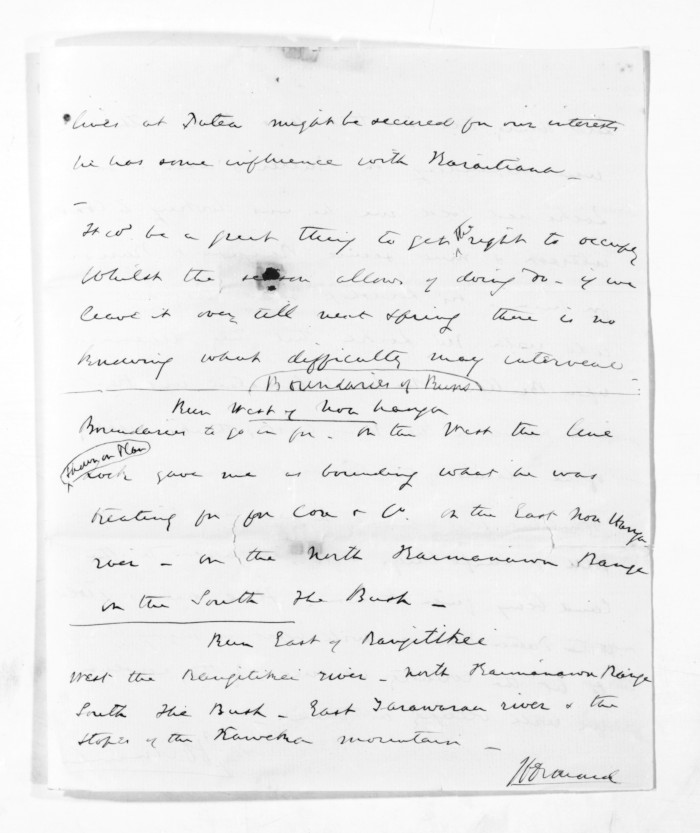 lives at Patea might be secured for our interests
he has some influence with Karaitiana _
It wd be a great thing to get the right to occupy
Whilst the season allows of doing so - if we
leave it over till next Spring there is no
knowing what difficulty may intervene -
Boundaries of Runs
Run West of Moa Wanga
Boundaries to go in for - on the West the line
shewn on Plan
gave me as bounding what he was
treating for for Cox & Co. on the East Moa Wanga
river - on the North Kaimanawa Range
on the South the Bush -
Run East of Rangitikei
West the Rangitikei river - North Kaimanawa Range
South the Bush - East Tarawarau river & the
slopes of the Kaweka mountain -